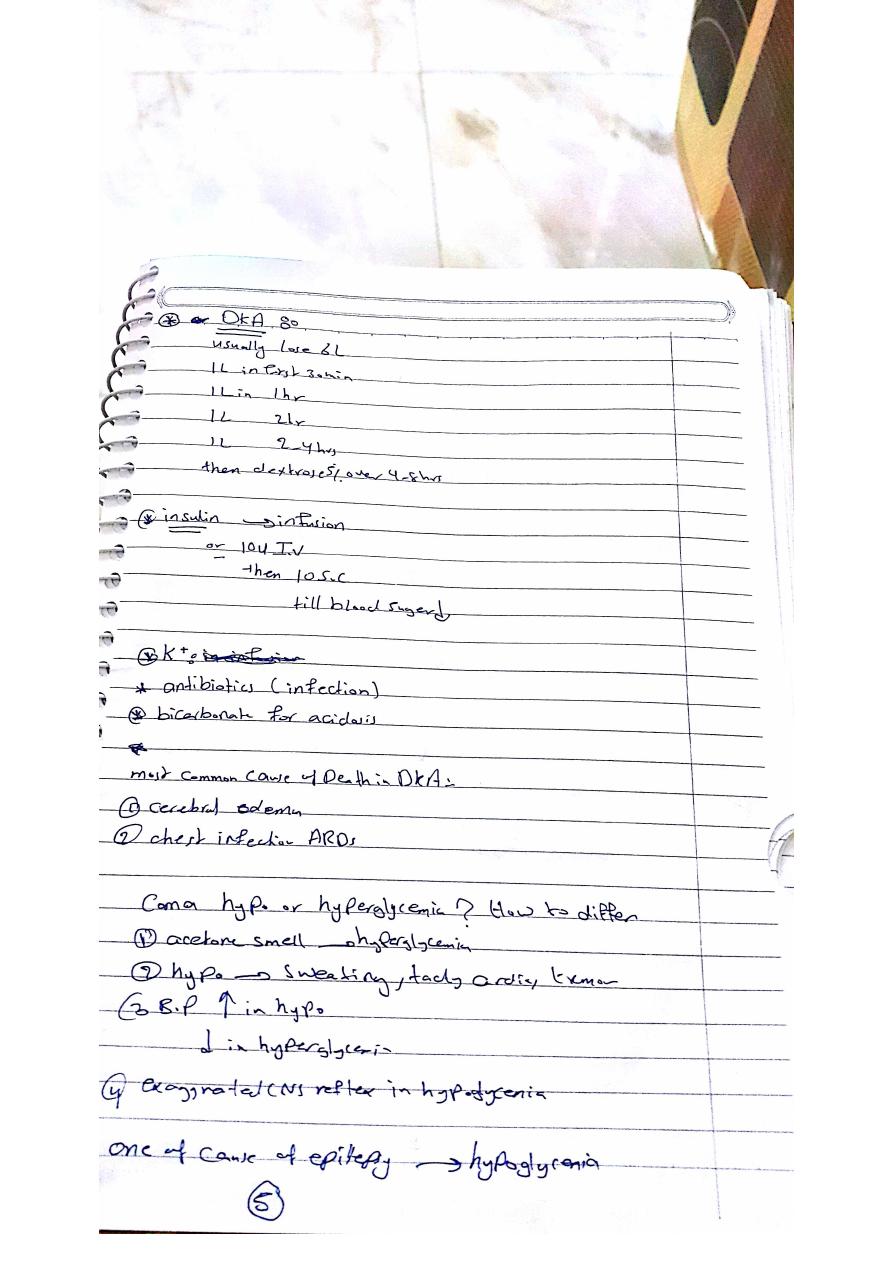 DKA:
usually lose 6L
1L in first 30min
1L in 1hr
1L 2hr
1L 2-4hrs
then dextrose 5% over 4-8hrs
insulin → infusion
or 10u I.V
then 10 S.C
till blood suger↓
K+:
* antibiotics (infection)
bicarbonate for acidosis
most common cause of Death in DKA:
① cerebral edema
② chest infection ARDs
Coma hypo or hyperglycemia? How to differ
① acetone smell → hyperglycemia
② hypo → sweating, tachycardia, tremor
③ B.P ↑ in hypo
↓ in hyperglycemia
④ exaggrated CNS reflex in hypoglycemia
one of cause of epilepsy → hypoglycemia
⑤